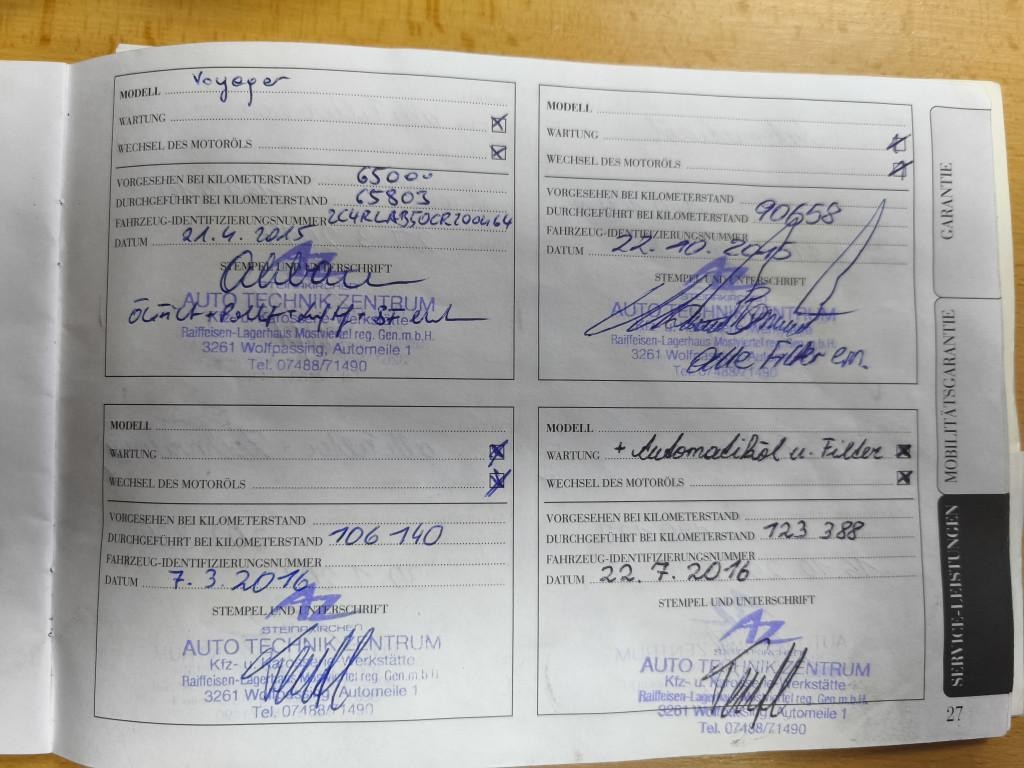 MODELL Voyager
WARTUNG
WECHSEL DES MOTORÖLS
VORGESEHEN BEI KILOMETERSTAND 65000
DURCHGEFÜHRT BEI KILOMETERSTAND 65803
FAHRZEUG-IDENTIFIZIERUNGSNUMMER
DATUM 21.4. 2015
STEMPEL UND UNTERSCHRIFT
AZ
AUTO TECHNIK ZENTRUM
Raiffeisen-Lagerhaus Mostviertel reg. Gen.m.b.H.
3261 Wolfpassing, Automeile 1
Tel. 07488/71490
MODELL
WARTUNG
WECHSEL DES MOTORÖLS
VORGESEHEN BEI KILOMETERSTAND
DURCHGEFÜHRT BEI KILOMETERSTAND 90658
FAHRZEUG-IDENTIFIZIERUNGSNUMMER
DATUM 22. 10. 2015
STEMPEL UND UNTERSCHRIFT
AZ
AUTO TECHNIK ZENTRUM
Raiffeisen-Lagerhaus Mostviertel reg. Gen.m.b.H.
3261 Wolfpassing, Automeile 1
alle Filter ern.
Tel. 07488/71490
MODELL
WARTUNG
WECHSEL DES MOTORÖLS
VORGESEHEN BEI KILOMETERSTAND
DURCHGEFÜHRT BEI KILOMETERSTAND 106 140
FAHRZEUG-IDENTIFIZIERUNGSNUMMER
DATUM 7. 3. 2016
STEMPEL UND UNTERSCHRIFT
AZ
STEINAKIRCHEN
AUTO TECHNIK ZENTRUM
Kfz- u. Karosserie-Werkstätte
Raiffeisen-Lagerhaus Mostviertel reg. Gen.m.b.H.
3261 Wolfpassing, Automeile 1
Tel. 07488/71490
MODELL
WARTUNG + Automatiköl u. Filter
WECHSEL DES MOTORÖLS
VORGESEHEN BEI KILOMETERSTAND
DURCHGEFÜHRT BEI KILOMETERSTAND 123 388
FAHRZEUG-IDENTIFIZIERUNGSNUMMER
DATUM 22. 7. 2016
STEMPEL UND UNTERSCHRIFT
AZ
STEINAKIRCHEN
AUTO TECHNIK ZENTRUM
Kfz- u. Karosserie-Werkstätte
Raiffeisen-Lagerhaus Mostviertel reg. Gen.m.b.H.
3261 Wolfpassing, Automeile 1
Tel. 07488/71490
GARANTIE
MOBILITÄTSGARANTIE
SERVICE-LEISTUNGEN
27